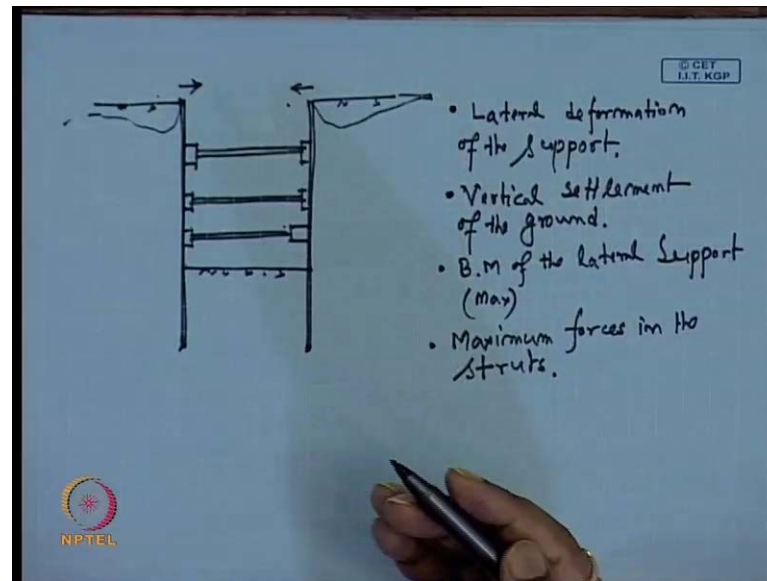 © CET
I.I.T. KGP
• Lateral deformation
of the support.
• Vertical settlement
of the ground.
• B.M of the lateral Support
(Max)
• Maximum forces in the
struts.
NPTEL